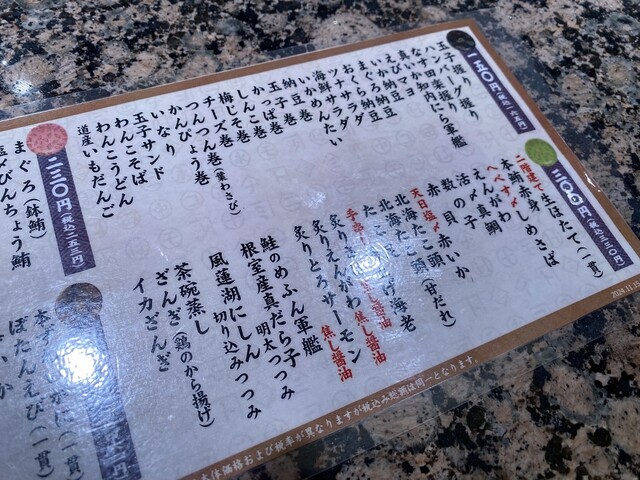 一五〇円(税込一六五円)
玉子握り
ハンバーグ握り
なす田楽握り
真いか知内にら軍艦
えびマヨ
いか納豆
まぐろ納豆
おくら納豆
まいサラダ
ツナサラダ
海鮮サラダ
いかめんたい
納豆巻
玉子巻
かっぱ巻
しんこ巻
梅じそ巻
チーズ巻
つんつん巻(茎わさび)
かんぴょう巻
いなり
玉子サンド
わんこそば
わんこうどん
道産いもだんご
三〇〇円(税込三三〇円)
二階建て生ほたて(一貫)
本鮪赤身
しめさば
へべす〆
えんがわ
真鯛
活〆
数の子
赤いか
天日塩〆
赤目(甘だれ)
北海たこ頭
北海たこ
炙りえんがわ 焦し醤油
炙りとろサーモン 焦し醤油
鮭のめふん軍艦
根室産真だら子 明太つつみ
風蓮湖にしん 切り込みつつみ
茶碗蒸し
ざんぎ(鶏のから揚げ)
イカざんぎ
二三〇円(税込二五三円)
まぐろ(鉢鮪)
塩〆びんちょう鮪
ぼたんえび(一貫)
(一貫)
本体価格および税率が異なりますが税込み総額は同一となります。
2024.11.15